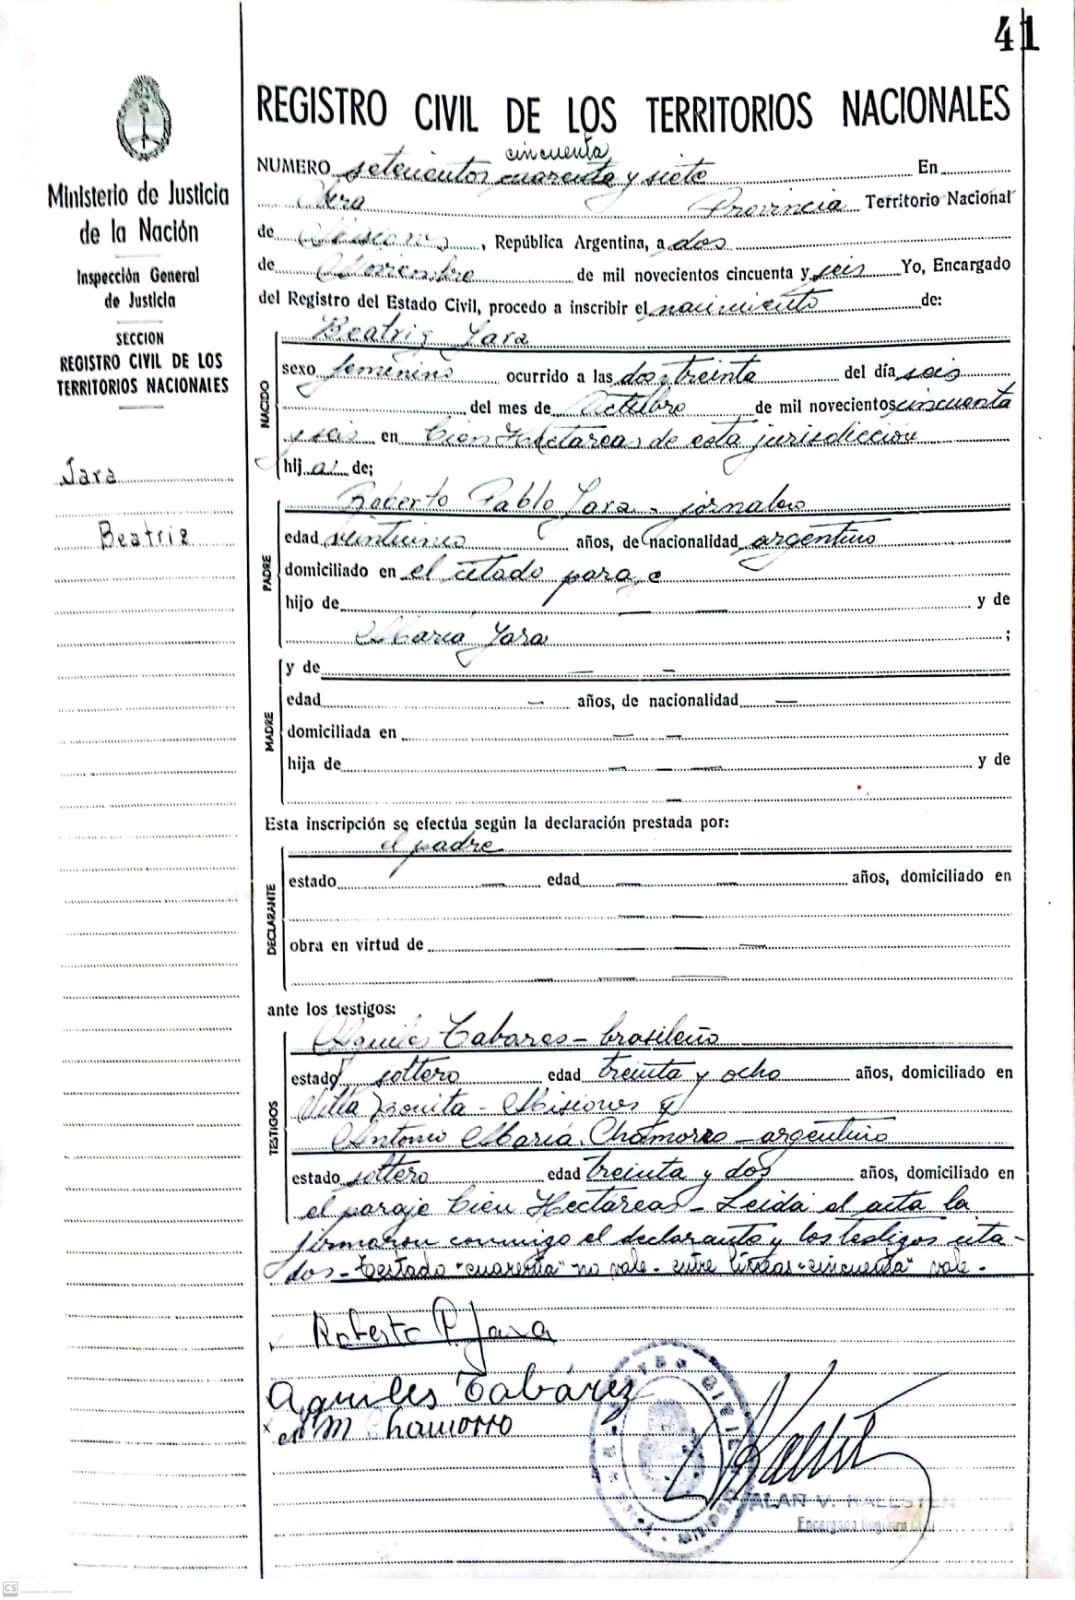 41
REGISTRO CIVIL DE LOS TERRITORIOS NACIONALES
Ministerio de Justicia
de la Nación
Inspección General
de Justicia
SECCION
REGISTRO CIVIL DE LOS
TERRITORIOS NACIONALES
Jara
Beatriz
cincuenta
NUMERO setecientos cuarenta y siete En
Obera Provincia Territorio Nacional
de Misiones, República Argentina, a dos
de Noviembre de mil novecientos cincuenta y seis Yo, Encargado
del Registro del Estado Civil, procedo a inscribir el nacimiento de:
NACIDO
Beatriz Jara
sexo femenino ocurrido a las dos y treinta del día seis
del mes de Octubre de mil novecientos cincuenta
y seis en Cien Hectareas de esta jurisdicción
hij a de;
PADRE
Roberto Pablo Jara - jornalero
edad años, de nacionalidad argentino
domiciliado en el citado paraje
hijo de — — y de
María Jara ;
MADRE
y de — —
edad — años, de nacionalidad —
domiciliada en — —
hija de — — — y de
—
Esta inscripción se efectúa según la declaración prestada por:
DECLARANTE
el padre
estado — edad — — años, domiciliado en
— —
obra en virtud de — —
— — —
ante los testigos:
TESTIGOS
Aquiles Tabares - brasileño
estado soltero edad treinta y ocho años, domiciliado en
Villa Bonita - Misiones y
Antonio María Chamorro - argentino
estado soltero edad treinta y dos años, domiciliado en
el paraje Cien Hectareas - Leida el acta la
firmaron conmigo el declarante y los testigos cita-
dos - Testado "cuarenta" no vale - entre líneas "cincuenta" vale -
Roberto P. Jara
Aquiles Tabárez
M Chamorro
CIVIL
ALAN V. KALLSTEN
Encargado Registro Civil
CS